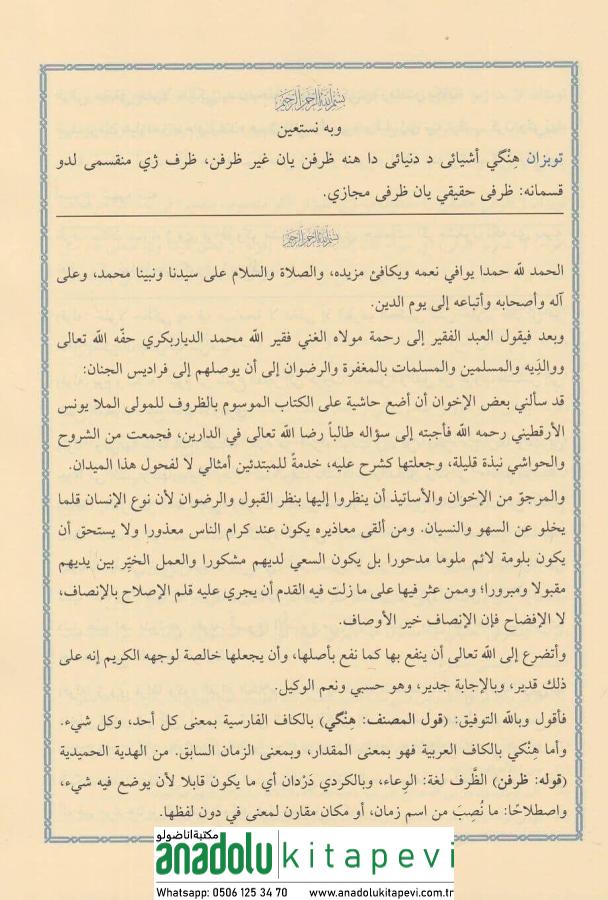 بسم الله الرحمن الرحيم
وبه نستعين
توبزان هِنْگي أشيائى د دنيائى دا هنه ظرفن يان غير ظرفن، ظرف ژي منقسمى لدو
قسمانه: ظرفى حقيقي يان ظرفى مجازي.
بسم الله الرحمن الرحيم
الحمد لله حمدا يوافي نعمه ويكافئ مزيده، والصلاة والسلام على سيدنا ونبينا محمد، وعلى
آله وأصحابه وأتباعه إلى يوم الدين.
وبعد فيقول العبد الفقير إلى رحمة مولاه الغني فقير الله محمد الدياربكري حفّه الله تعالى
ووالدَيه والمسلمين والمسلمات بالمغفرة والرضوان إلى أن يوصلهم إلى فراديس الجنان:
قد سألني بعض الإخوان أن أضع حاشية على الكتاب الموسوم بالظروف للمولى الملا يونس
الأرقطيني رحمه الله فأجبته إلى سؤاله طالباً رضا الله تعالى في الدارين، فجمعت من الشروح
والحواشي نبذة قليلة، وجعلتها كشرح عليه، خدمةً للمبتدئين أمثالي لا لفحول هذا الميدان.
والمرجوّ من الإخوان والأساتيذ أن ينظروا إليها بنظر القبول والرضوان لأن نوع الإنسان قلما
يخلو عن السهو والنسيان. ومن ألقى معاذيره يكون عند كرام الناس معذورا ولا يستحق أن
يكون بلومة لائم ملوما مدحورا بل يكون السعي لديهم مشكورا والعمل الخيّر بين يديهم
مقبولا ومبرورا؛ وممن عثر فيها على ما زلت فيه القدم أن يجري عليه قلم الإصلاح بالإنصاف،
لا الإفضاح فإن الإنصاف خير الأوصاف.
وأتضرع إلى الله تعالى أن ينفع بها كما نفع بأصلها، وأن يجعلها خالصة لوجهه الكريم إنه على
ذلك قدير، وبالإجابة جدير، وهو حسبي ونعم الوكيل.
فأقول وبالله التوفيق: (قول المصنف: هِنْگي) بالكاف الفارسية بمعنى كل أحد، وكل شيء.
وأما هِنْكي بالكاف العربية فهو بمعنى المقدار، وبمعنى الزمان السابق. من الهدية الحميدية
(قوله: ظرفن) الظَّرف لغة: الوِعاء، وبالكردي دَرْدان أي ما يكون قابلا لأن يوضع فيه شيء،
واصطلاحًا: ما نُصِبَ من اسم زمان، أو مكان مقارن لمعنى في دون لفظها.
مكتبة اناضولو
anadolu kitapevi
Whatsapp: 0506 125 34 70 www.anadolukitapevi.com.tr